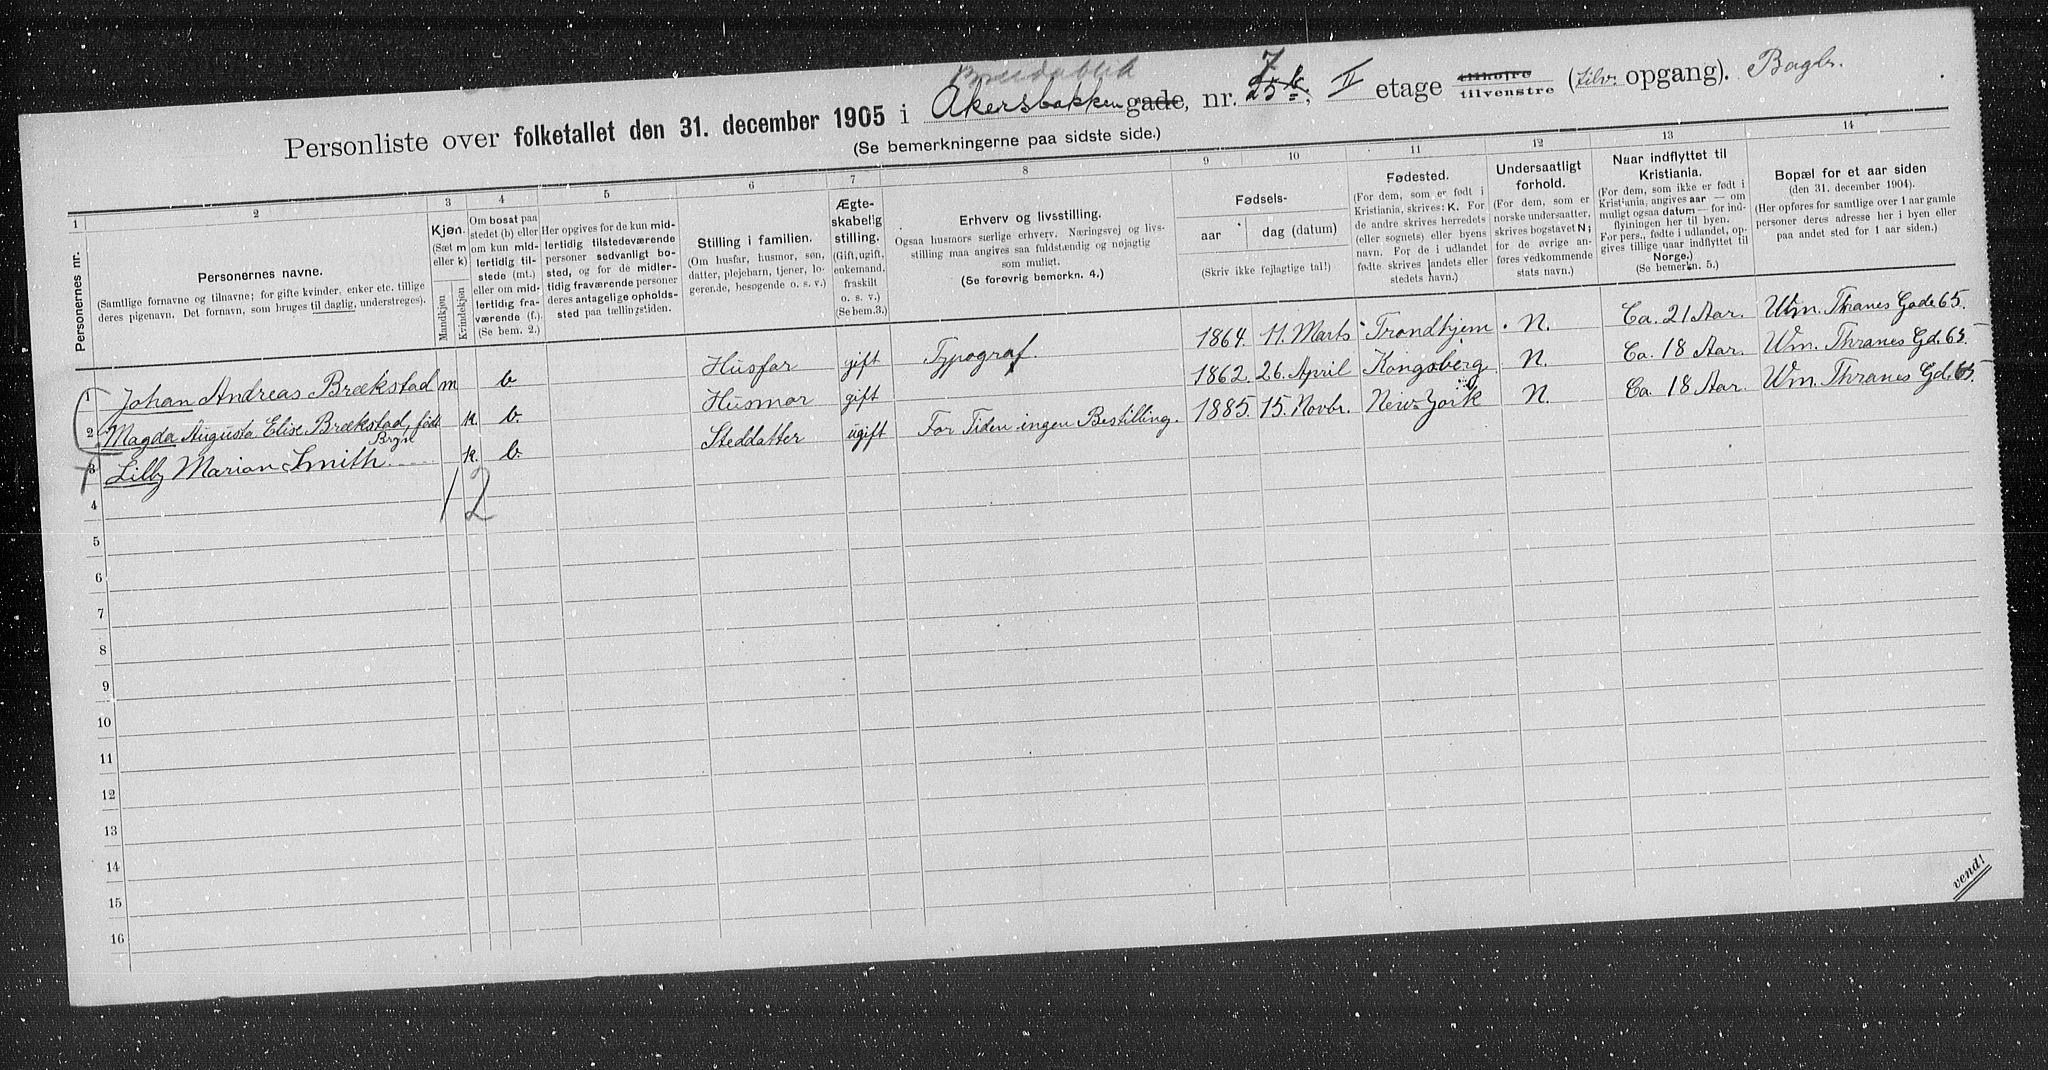 Personliste over folketallet den 31. december 1905 i Akersbakken gade, nr. 25 b, 7 II etage tilhøjre tilvenstre (tilv. opgang). Bagbr.
(Se bemerkningerne paa sidste side.)
1 2 3 4 5 6 7 8 9 10 11 12 13 14
Personernes nr.
Personernes navne.
(Samtlige fornavne og tilnavne; for gifte kvinder, enker etc. tillige
deres pigenavn. Det fornavn, som bruges til daglig, understreges).
Kjøn.
(Sæt m
eller k)
Mandkjøn
Kvindekjøn
Om bosat paa
stedet (b) eller
om kun mid-
lertidig til-
stede (mt.)
eller om mid-
lertidig fra-
værende (f.).
(Se bem. 2.)
Her opgives for de kun mid-
lertidig tilstedeværende
personer sedvanligt bo-
sted, og for de midler-
tidig fraværende personer
deres antagelige opholds-
sted paa tællingstiden.
Stilling i familien.
(Om husfar, husmor, søn,
datter, plejebarn, tjener, lo-
gerende, besøgende o. s. v.)
Ægte-
skabelig
stilling.
(Gift, ugift,
enkemand,
fraskilt
o. s. v.)
(Se bem. 3.)
Erhverv og livsstilling.
Ogsaa husmors særlige erhverv. Næringsvej og livs-
stilling maa angives saa fuldstændig og nøjagtig
som muligt.
(Se forøvrig bemerkn. 4.)
Fødsels-
aar dag (datum)
(Skriv ikke fejlagtige tal!)
Fødested.
(For dem, som er født i
Kristiania, skrives: K. For
de andre skrives herredets
(eller sognets) eller byens
navn. For de i udlandet
fødte skrives landets eller
stedets navn.)
Undersaatligt
forhold.
(For dem, som er
norske undersaatter,
skrives bogstavet N;
for de øvrige an-
føres vedkommende
stats navn.)
Naar indflyttet til
Kristiania.
(For dem, som ikke er født i
Kristiania, angives aar — om
muligt ogsaa datum — for ind-
flyiningen her til byen.
For pers., fødte i udlandet, op-
gives tillige naar indflyttet til
Norge.)
(Se bemerkn. 5.)
Bopæl for et aar siden
(den 31. december 1904).
(Her opføres for samtlige over 1 aar gamle
personer deres adresse her i byen eller
paa andet sted for 1 aar siden.)
1 Johan Andreas Brækstad m b Husfar gift Typograf. 1864. 11. Marts Trondhjem N. Ca. 21 Aar. Wm. Thranes Gade 65.
2 Magda Augusta Elise Brækstad, født Bryn k. b. Husmor gift 1862. 26. April Kongsberg N. Ca. 18 Aar. Wm. Thranes Gd. 65.
3 Lilly Marian Smith k. b. Steddatter ugift For Tiden ingen Bestilling. 1885. 15. Novbr. New York N. Ca. 18 Aar. Wm. Thranes Gd. 65.
4 1 2
5
6
7
8
9
10
11
12
13
14
15
16
vend!